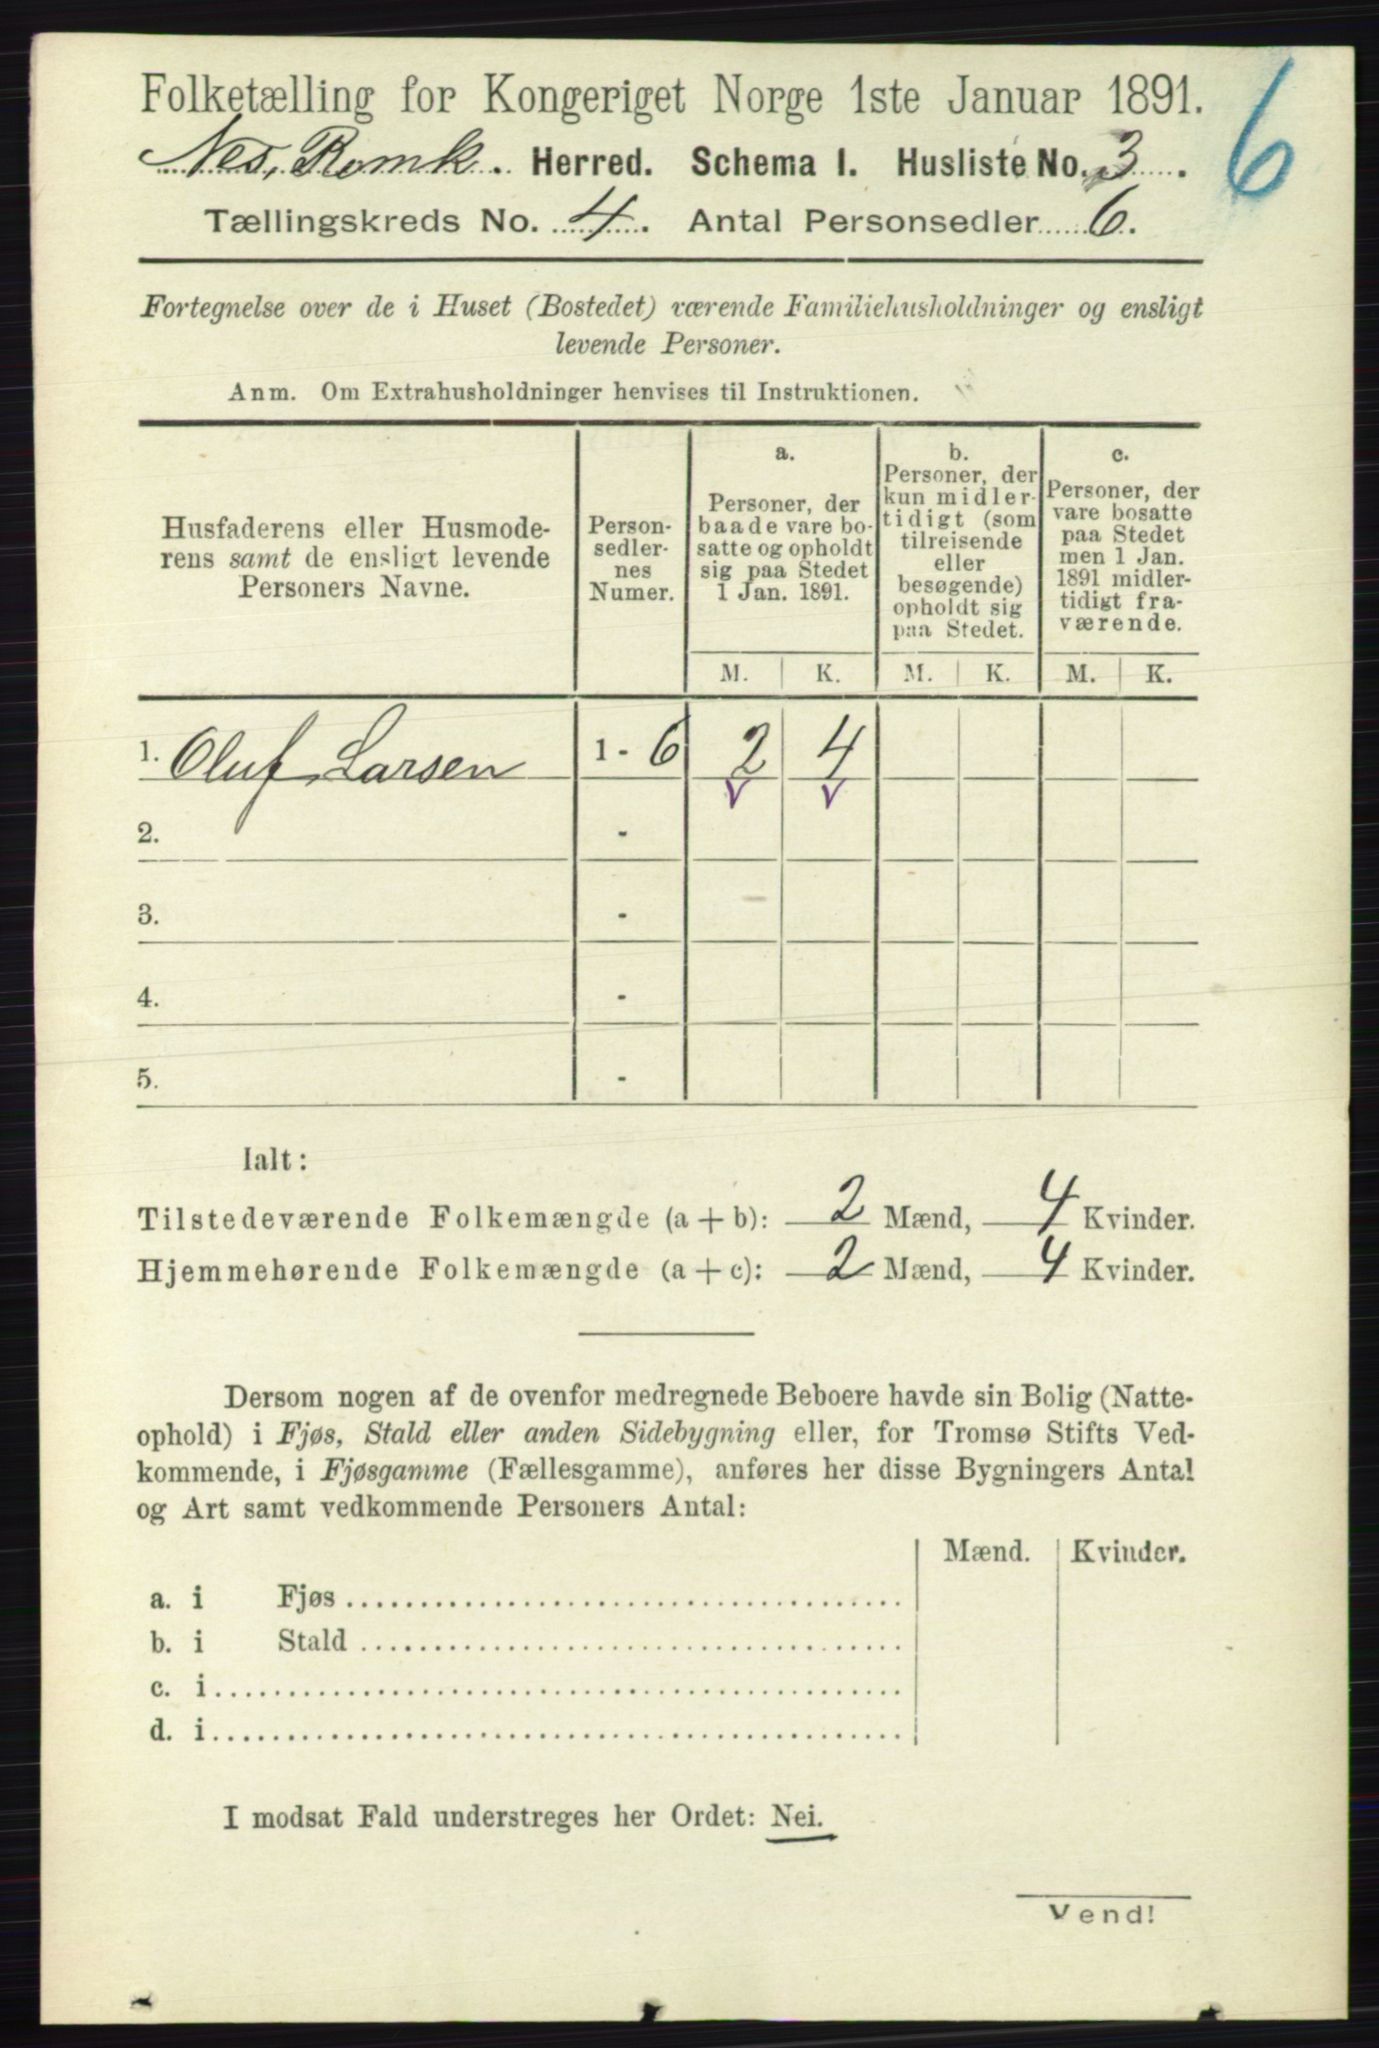 Folketælling for Kongeriget Norge 1ste Januar 1891.
6
Nes, Romk. Herred. Schema I. Husliste No. 3.
Tællingskreds No. 4. Antal Personsedler 6.
Fortegnelse over de i Huset (Bostedet) værende Familiehusholdninger og ensligt
levende Personer.
Anm. Om Extrahusholdninger henvises til Instruktionen.
Husfaderens eller Husmode-
rens samt de ensligt levende
Personers Navne.
Person-
sedler-
nes
Numer.
a.
Personer, der
baade vare bo-
satte og opholdt
sig paa Stedet
1 Jan. 1891.
b.
Personer, der
kun midler-
tidigt (som
tilreisende
eller
besøgende)
opholdt sig
paa Stedet.
c.
Personer, der
vare bosatte
paa Stedet
men 1 Jan.
1891 midler-
tidigt fra-
værende.
M. K. M. K. M. K.
1. Oluf Larsen 1 - 6 2 4
2. -
3. -
4. -
5. -
Ialt:
Tilstedeværende Folkemængde (a + b): 2 Mænd, 4 Kvinder.
Hjemmehørende Folkemængde (a + c): 2 Mænd, 4 Kvinder.
Dersom nogen af de ovenfor medregnede Beboere havde sin Bolig (Natte-
ophold) i Fjøs, Stald eller anden Sidebygning eller, for Tromsø Stifts Ved-
kommende, i Fjøsgamme (Fællesgamme), anføres her disse Bygningers Antal
og Art samt vedkommende Personers Antal:
Mænd. Kvinder.
a. i Fjøs
b. i Stald
c. i
d. i
I modsat Fald understreges her Ordet: Nei.
Vend!